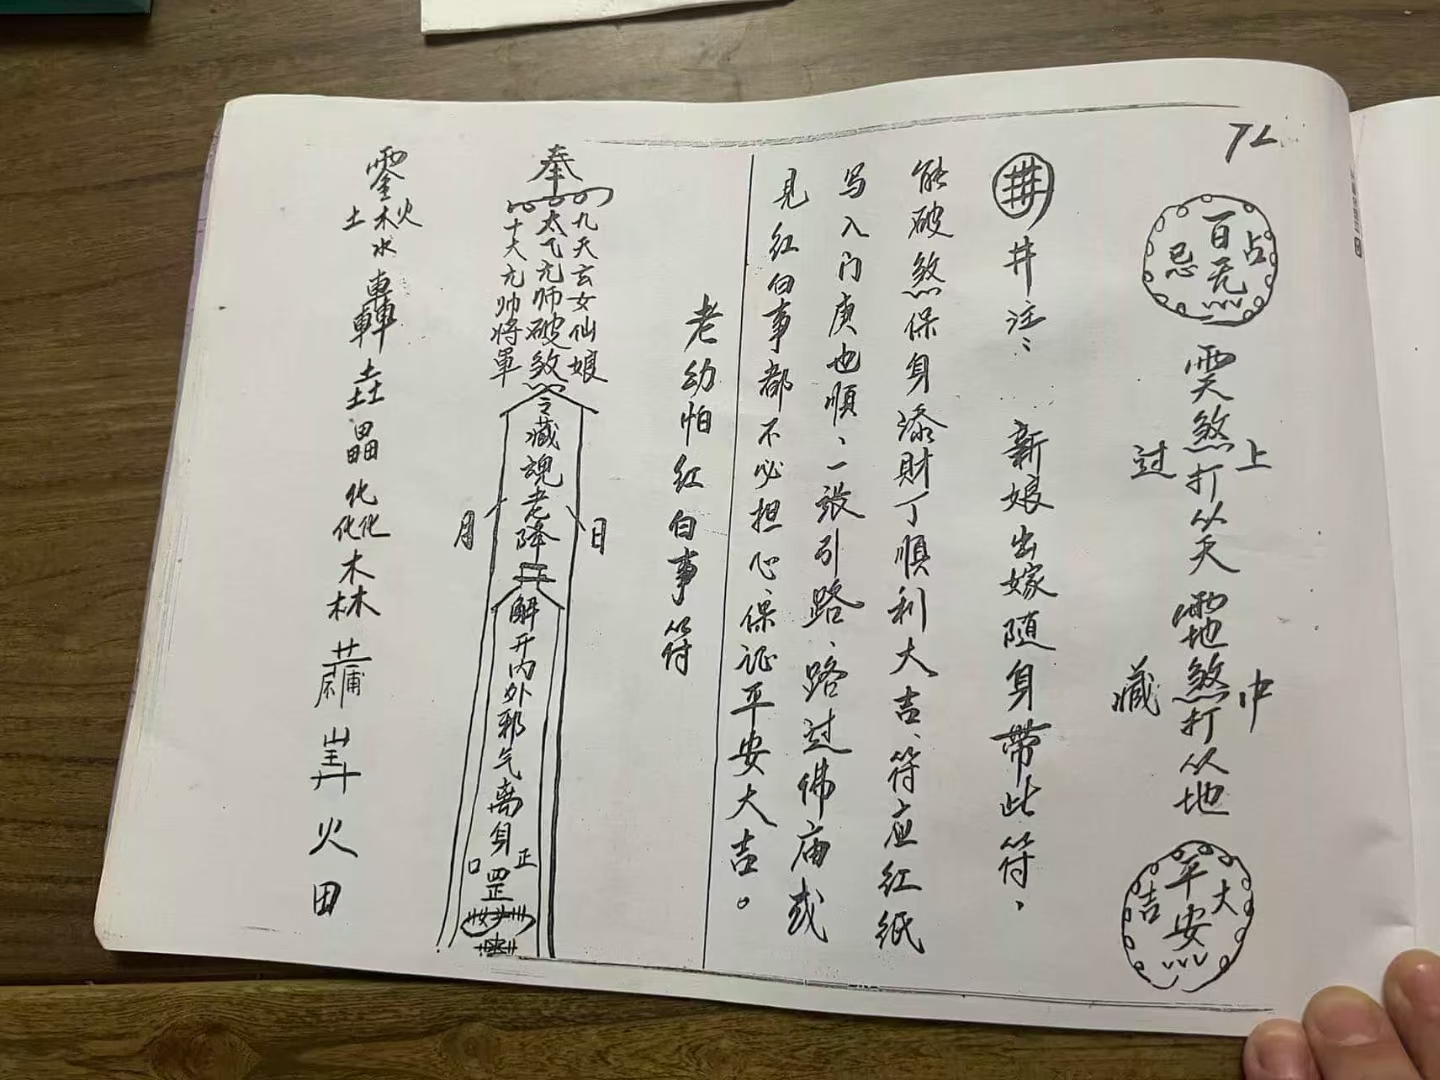 72
百无
占
忌
煞打从天
煞打从地
上
过
中
藏
平安
大
吉
井注：新娘出嫁随身带此符、
能破煞保身添财丁顺利大吉、符应红纸
写入门庚也顺、一张引路、路过佛庙或
见红白事都不必担心、保证平安大吉。
老幼怕红白事符
奉
九天玄女仙娘
太飞元师破煞
十大元帅将軍
藏魂老降
日
月
解开内外邪气离身罡
正
口
土木火
水
轟垚晶
化
化化
木
林
火田